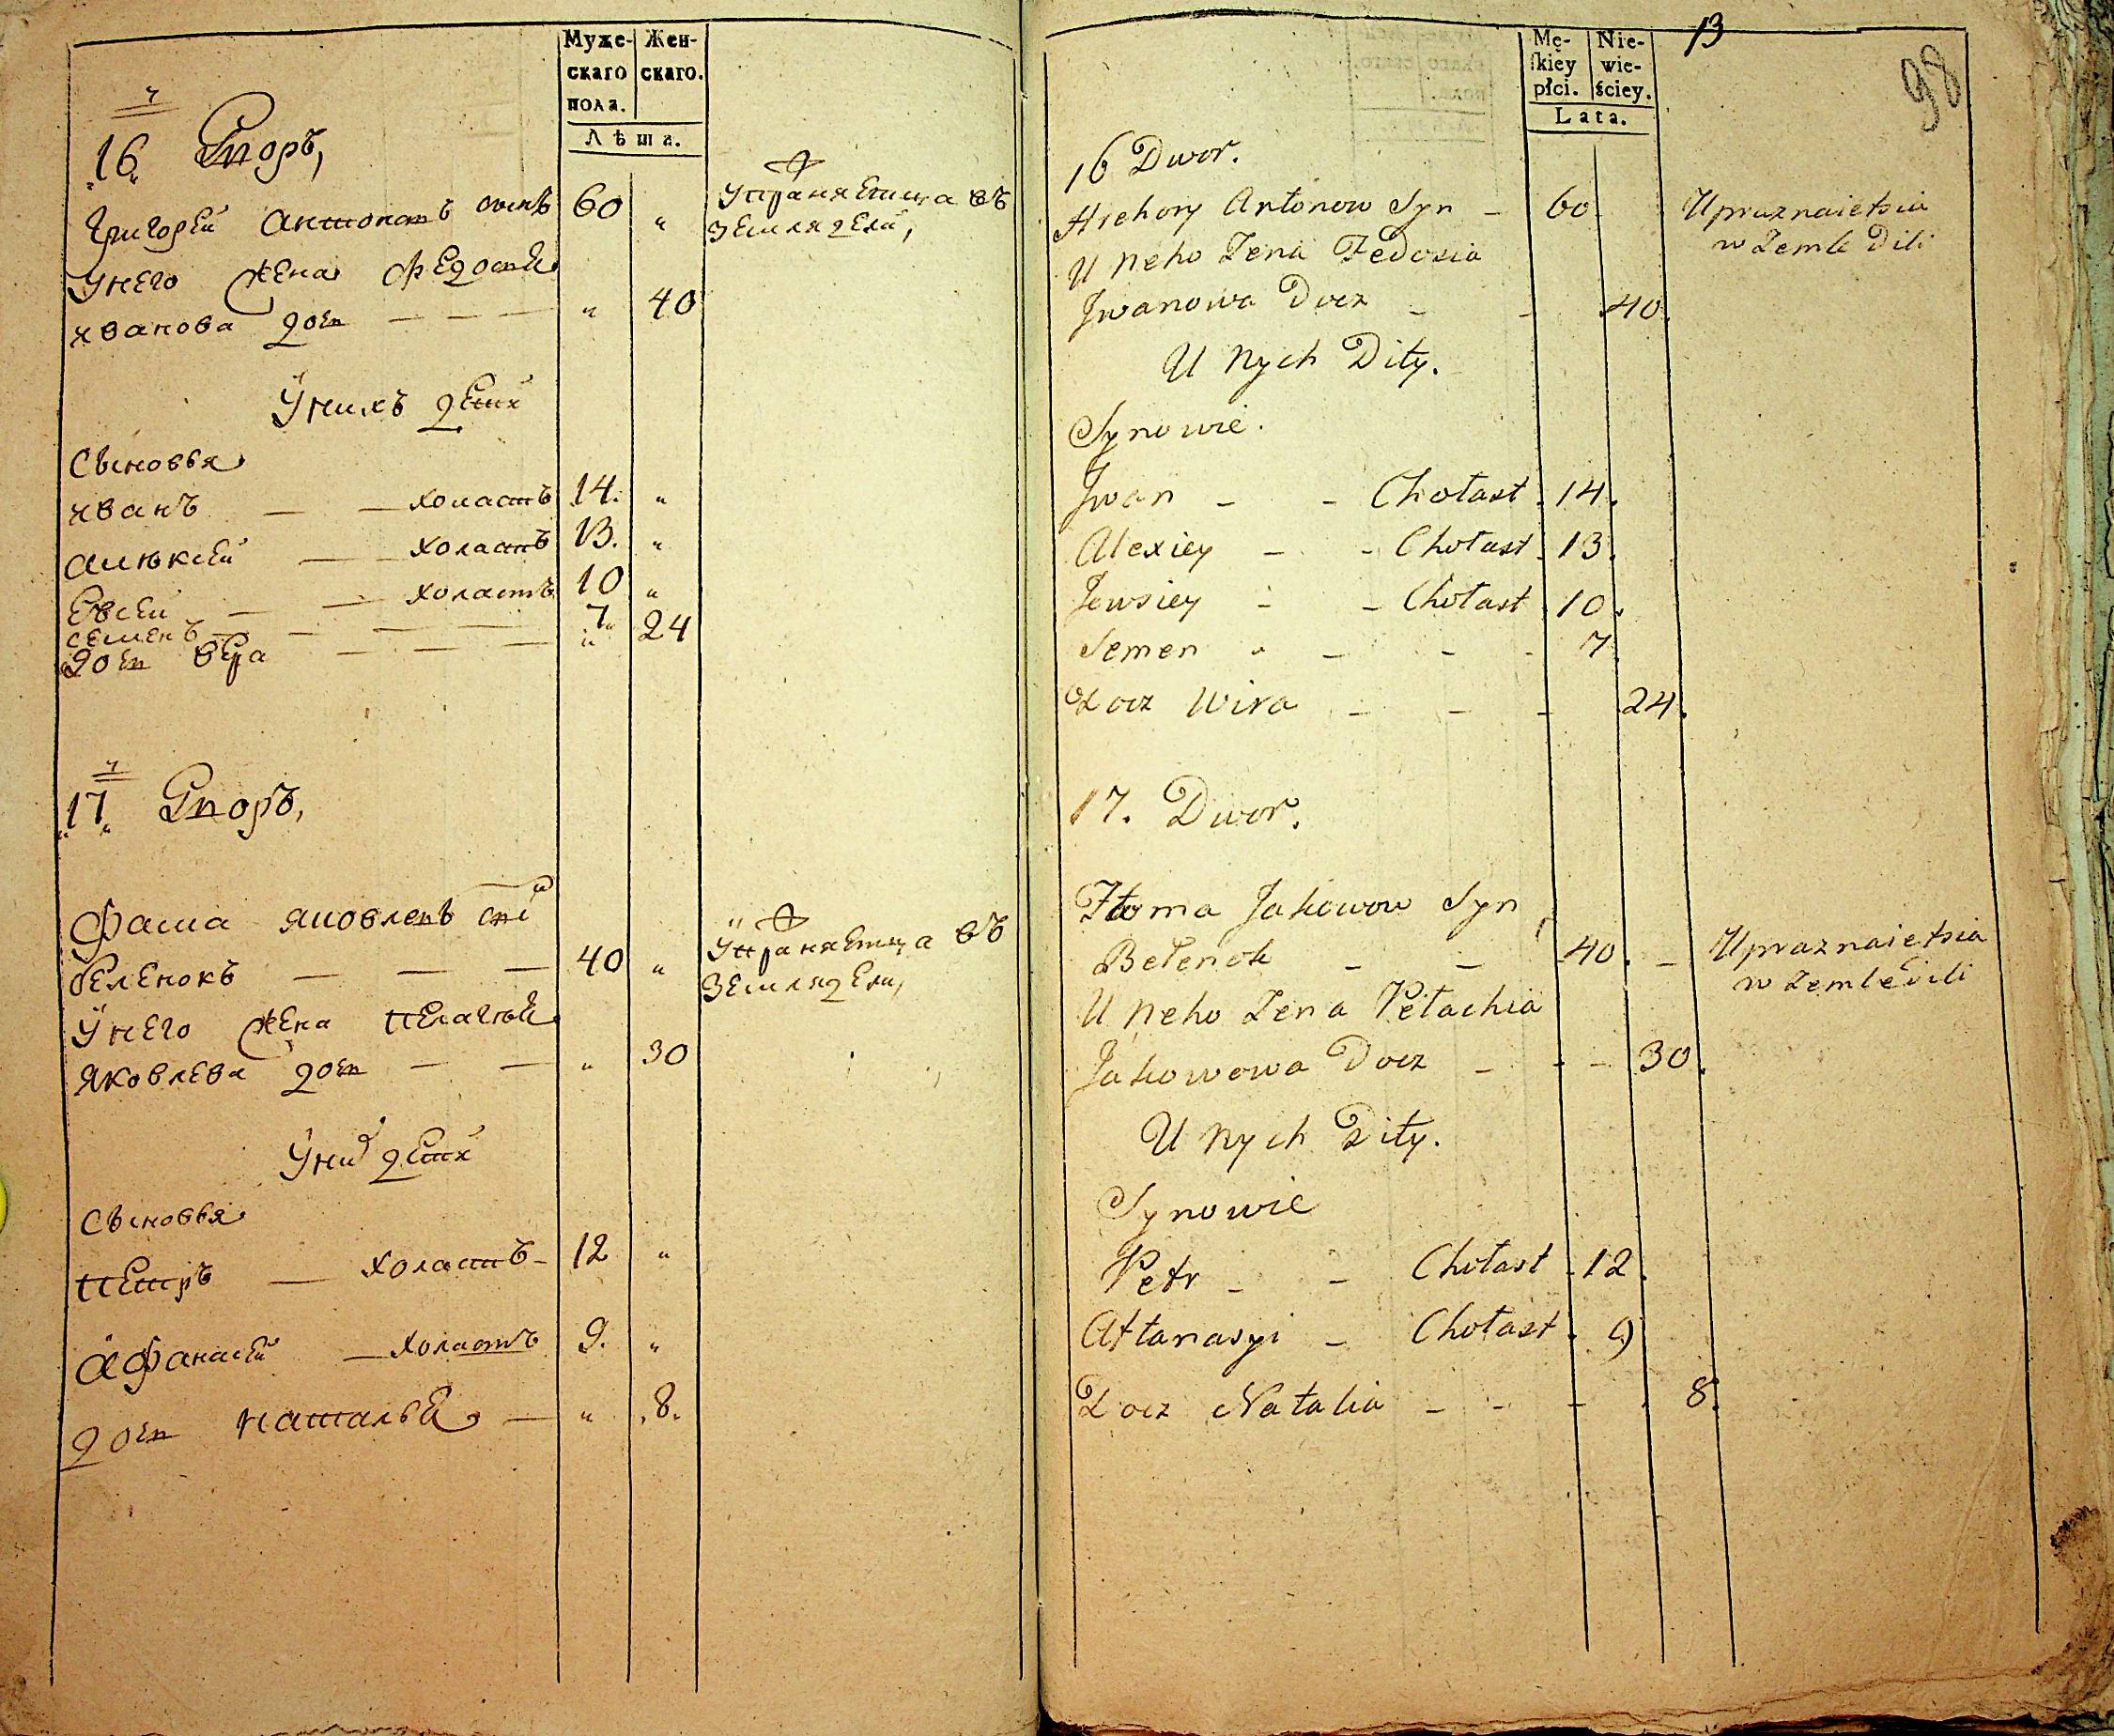 Муже-
скаго
пола.
Жен-
скаго.
Лѣта.
16 Дворъ,
Григорей Антоновъ сынъ 60 „
Упражняетца въ
земляделй,
У него жена Федосия
иванова дочь — — — „ 40
У нихъ дети
Сыновья
иванъ — — холастъ 14. „
Алѣксей — холастъ 13. „
Евсей — — холастъ 10 „
семенъ — — — — 7 „
дочь вера — — — „ 24
17 Дворъ,
Фама яковлевъ сн
беленокъ — — — 40 „
Упражняетца въ
земляделй,
У него жена пелагия
Яковлева дочь — — „ 30
У них дети
Сыновья
петръ — холастъ - 12 „
Афанасей — холастъ 9. „
дочь наталья — „ 8.
13
98
Mę-
skiey
płci.
Nie-
wie-
ściey.
Lata.
16 Dwor.
Hrehory Antonow Syn - 60
Upraznaietsia
w Zemle Dili
U Neho Zena Fedosia
Jwanowa Docz - - 40.
U Nych Dity.
Synowie.
Jwan - - Chołast. 14.
Alexiey - - Chołast. 13.
Jewsiey - - Chołast 10.
Semen - - - - 7.
Docz Wira - - - 24.
17. Dwor.
Ftoma Jakowow Syn
Bełenok - - 40. -
Upraznaietsia
w Zemledili
U Neho Zena Pełachia
Jakowowa Docz - - - 30.
U Nych Dity.
Synowie
Petr - - Chołast - 12.
Aftanasyi - Chołast. 9
Docz Natalia - - - 8.